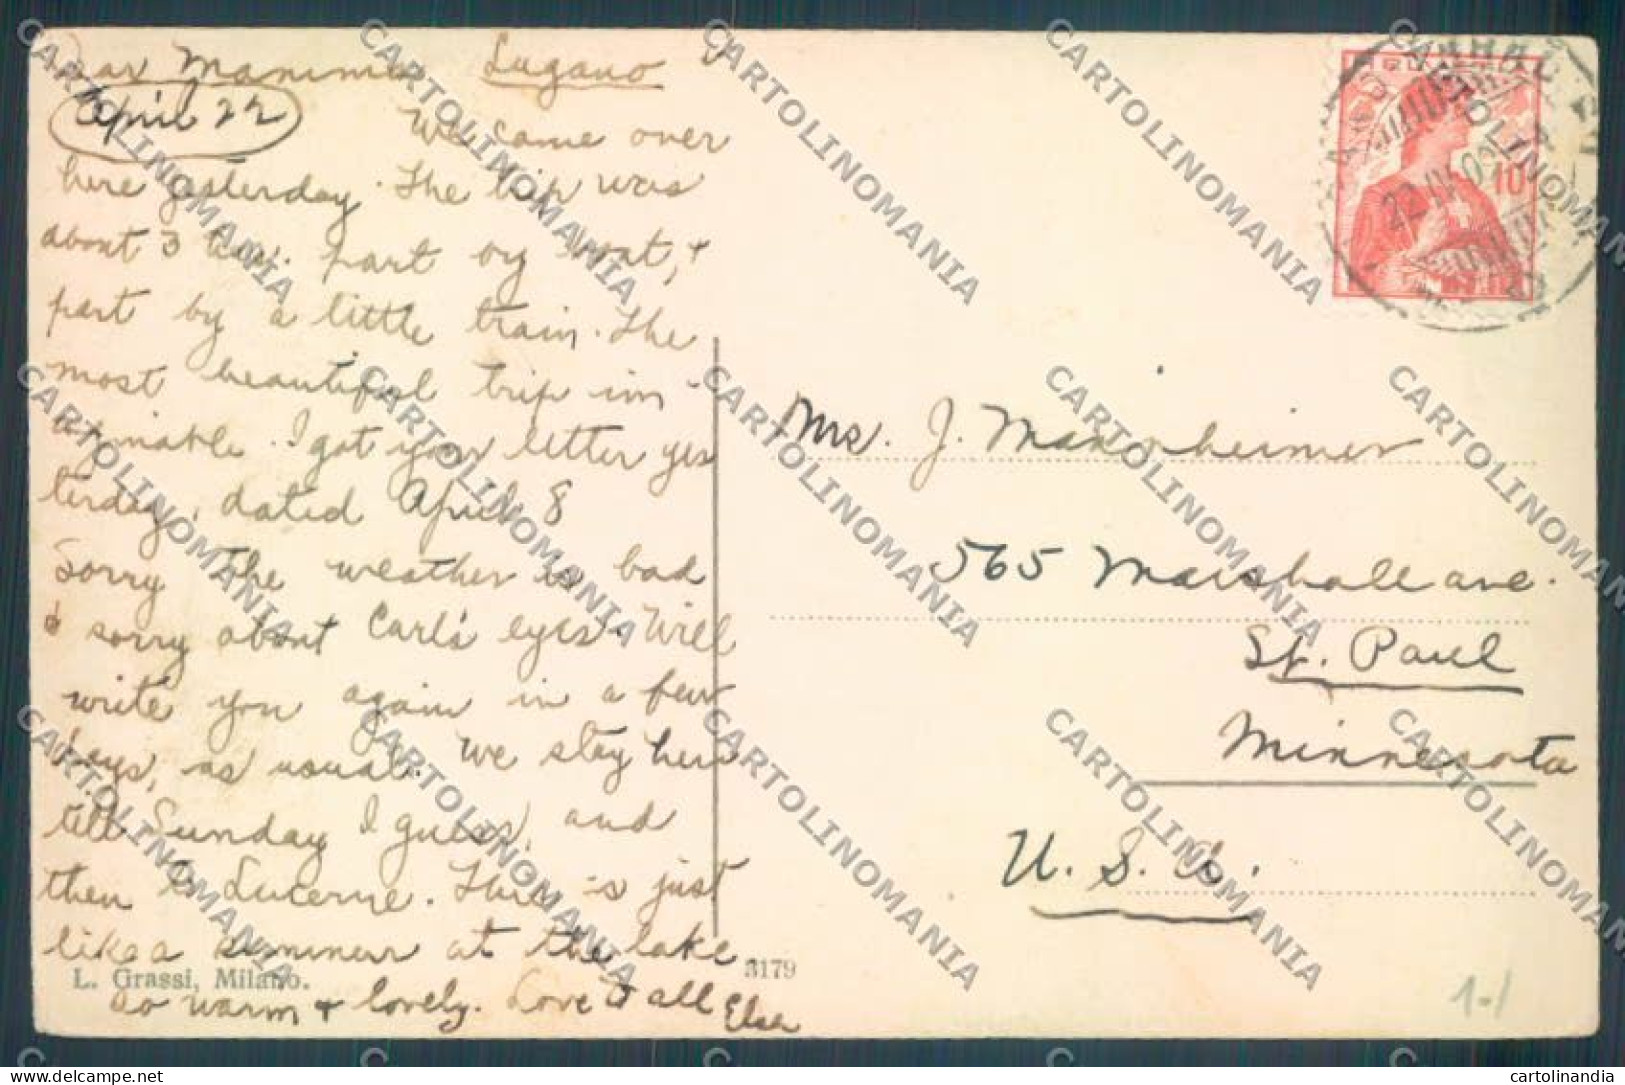 Dear Mamma Lugano
April 22
We came over
here yesterday. The trip was
about 3 hrs. part by boat, +
part by a little train. The
most beautiful trip im-
aginable. I got your letter yes
terday, dated April 8
Sorry the weather is bad
& sorry about Carl's eyes. Will
write you again in a few
days, as usual. We stay here
till Sunday I guess, and
then to Lucerne. This is just
like a summer at the lake.
So warm + lovely. Love to all Elsa
L. Grassi, Milano.
3179
HELVETIA
10
22 IV 09
Mrs. J. Mannheimer
565 Marshall ave.
St. Paul
Minnesota
U. S. A.
1-/
CARTOLINOMANIA
delcampe.net
cartolinandia